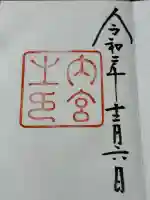 令和年十二月六日
内宮
之印